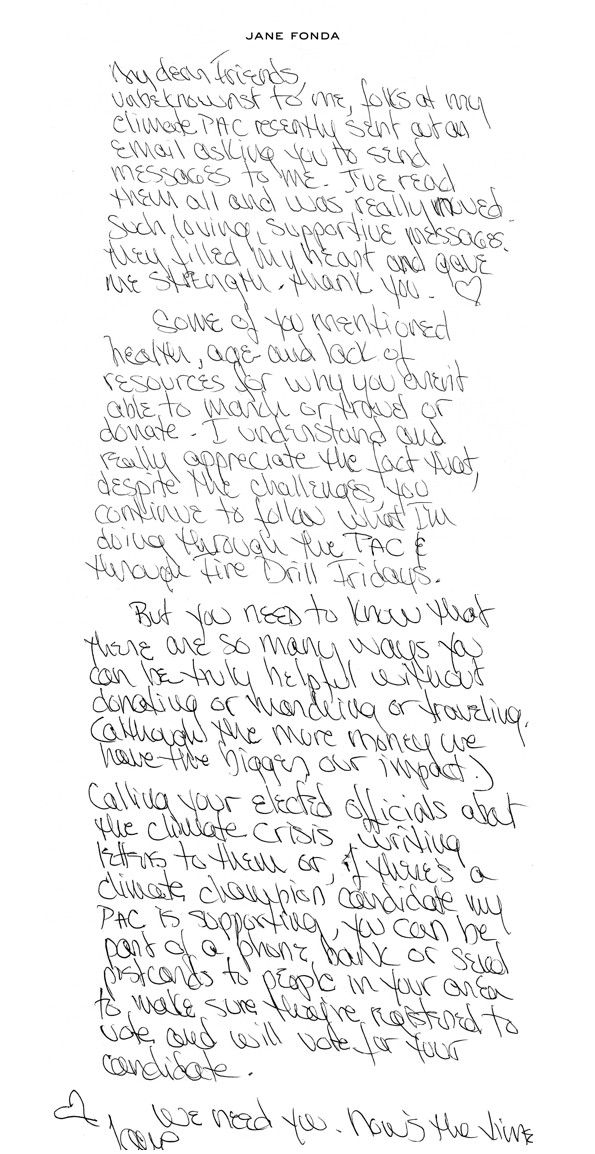 JANE FONDA
My dear Friends,
unbeknownst to me, folks at my
climate PAC recently sent out an
email asking you to send
messages to me. I've read
them all and was really moved.
Such loving, supportive messages.
They filled my heart and gave
me strength. Thank you. ♡
Some of you mentioned
health, age and lack of
resources for why you aren't
able to march or travel or
donate. I understand and
really appreciate the fact that,
despite the challenges, you
continue to follow what I'm
doing through the PAC &
through Fire Drill Fridays.
But you need to know that
there are so many ways you
can be truly helpful without
donating or marching or traveling.
(although the more money we
have the bigger our impact.)
Calling your elected officials about
the climate crisis, writing
letters to them or, if there's a
climate champion candidate my
PAC is supporting, you can be
part of a phone bank or send
postcards to people in your area
to make sure they're registered to
vote and will vote for your
candidate.
♡ We need you. Now's the time
love